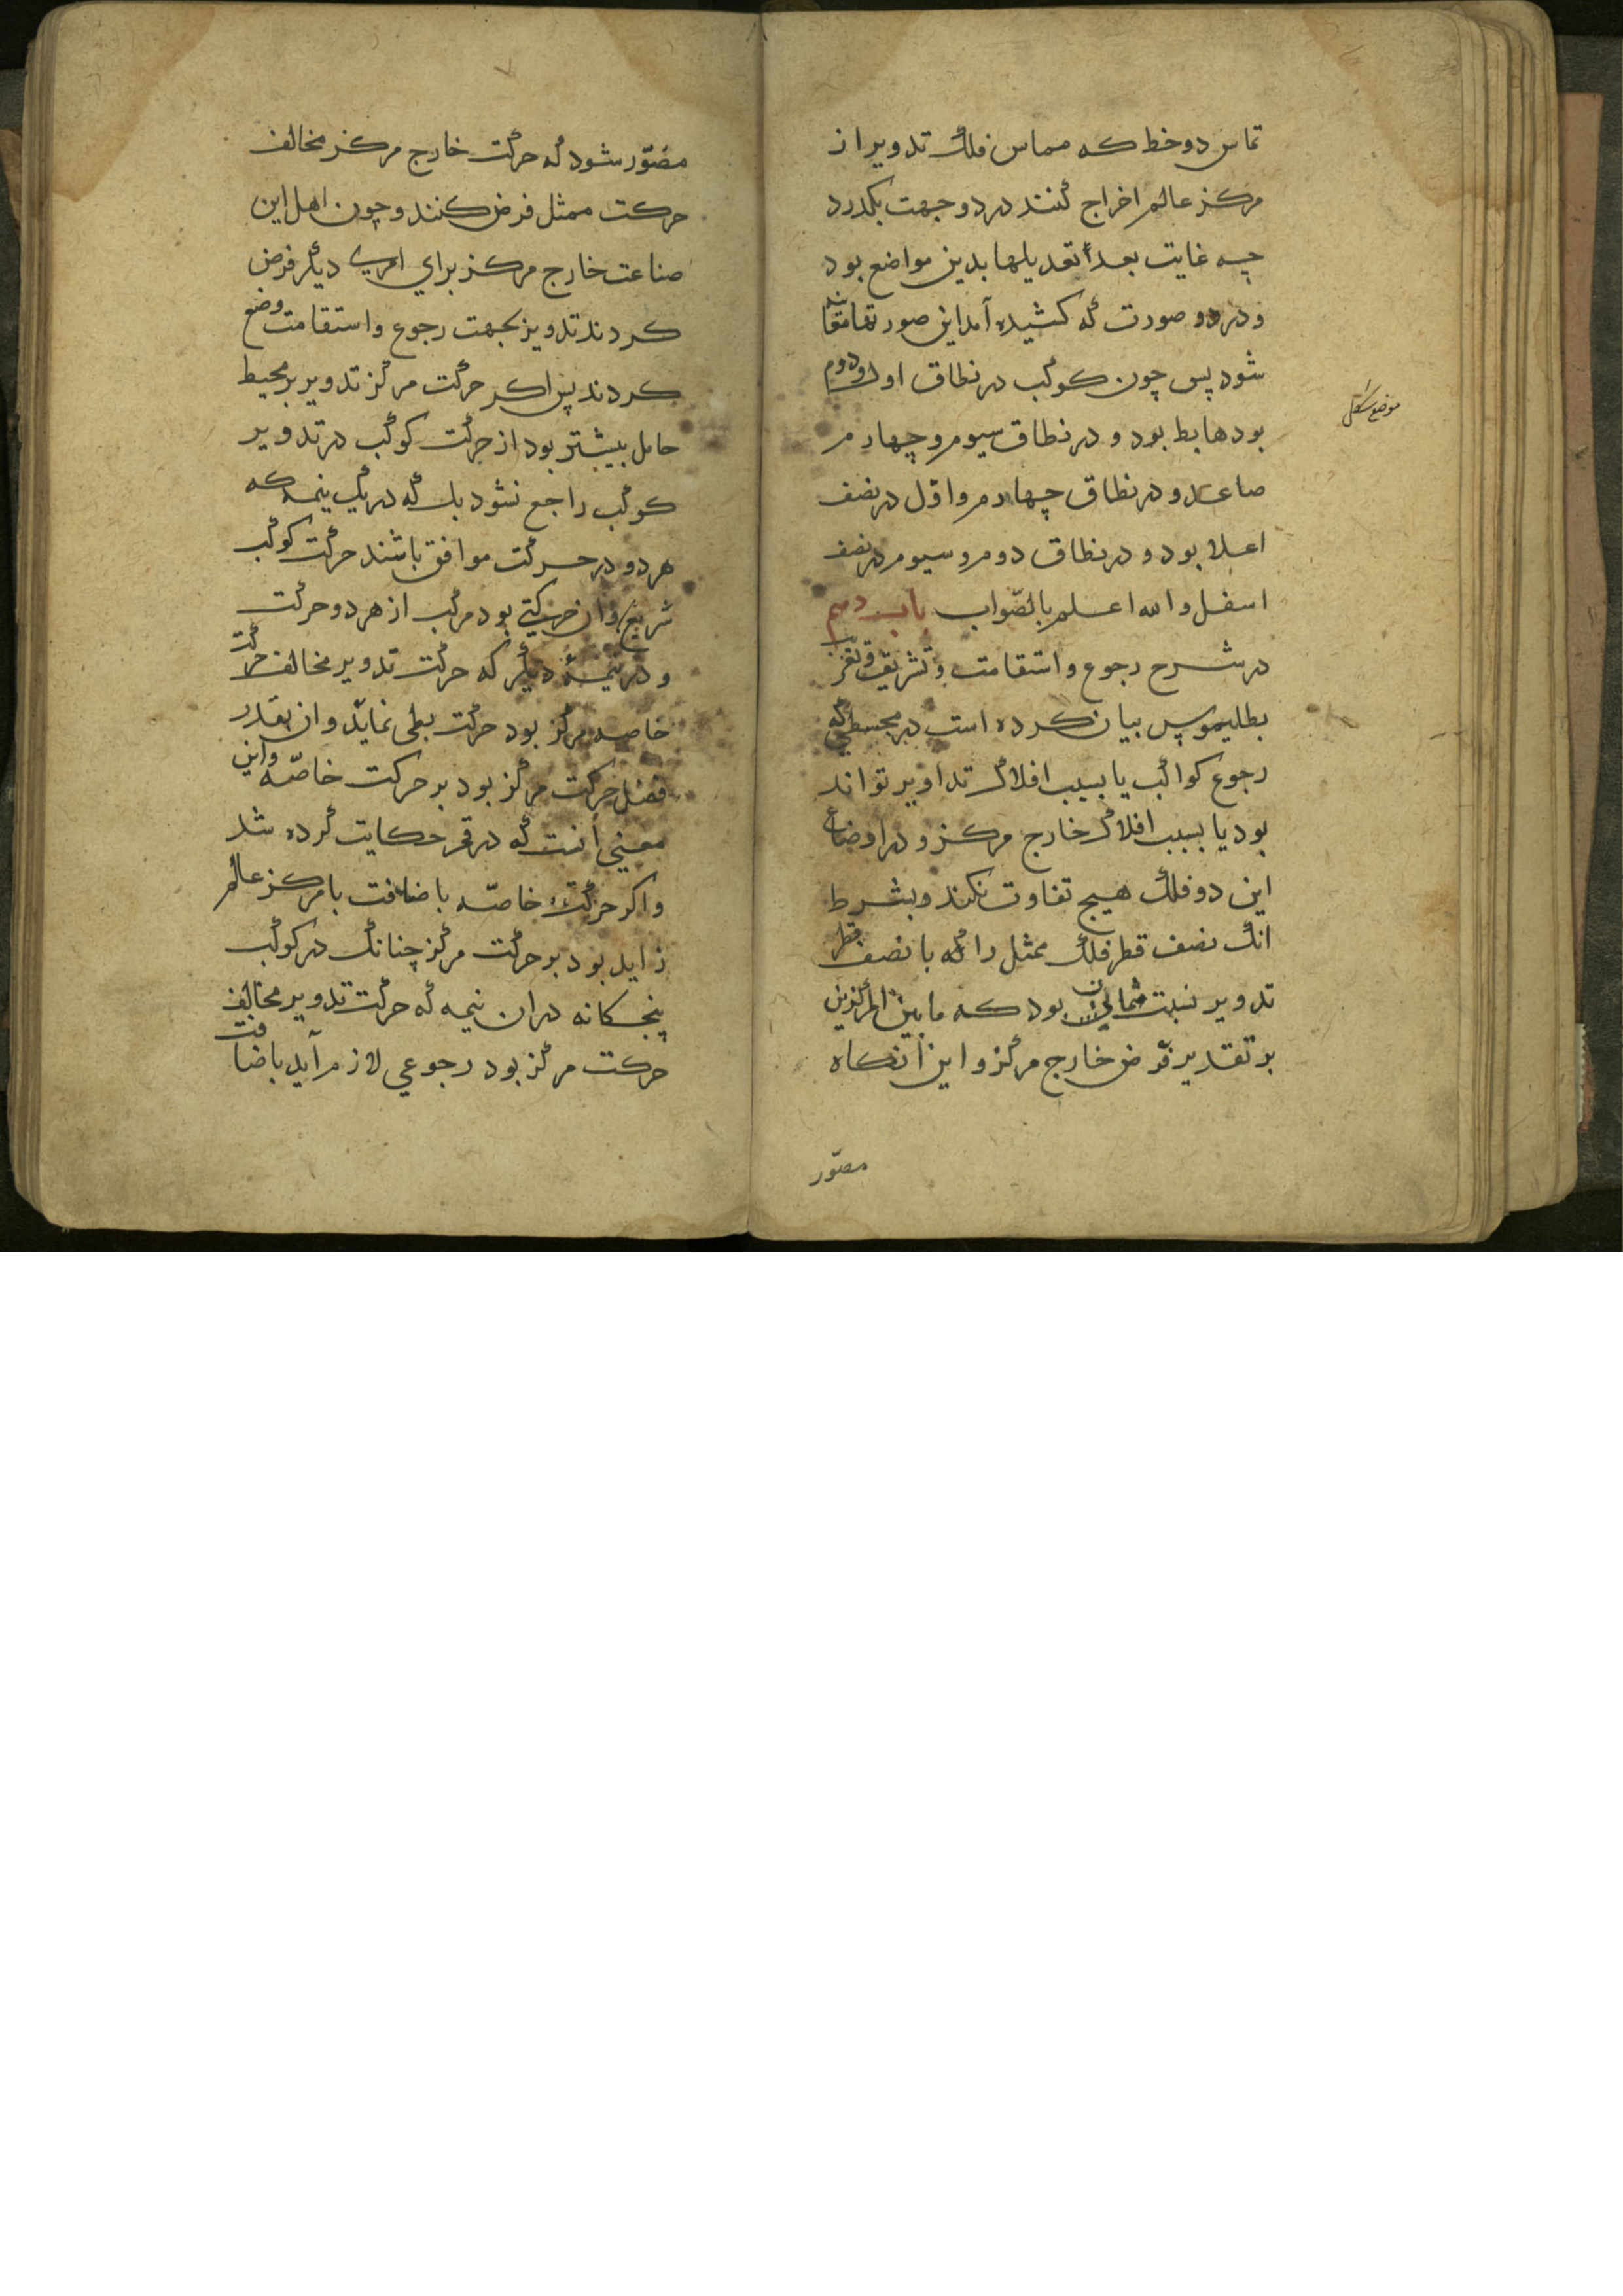 تماس دو خط که مماس فلک تدویر از
مرکز عالم اخراج کنند در دو جهت بکذرد
چه غایت بعد تعدیلها بدین مواضع بود
و در دو صورت که کشیده آمد این صور
شود پس چون کوکب در نطاق اول و دوم
بود هابط بود و در نطاق سیوم و چهارم
صاعد و در نطاق چهارم و اوّل در نصف
اعلا بود و در نطاق دوم و سیوم در نصف
اسفل و الله اعلم بالصّواب باب دهم
در شرح رجوع و استقامت و تشریق و تغریب
بطلیموس بیان کرده است در مجسطی که
رجوع کواکب یا بسبب افلاک تداویر تواند
بود یا بسبب افلاک خارج مرکز و در اوضاع
این دو فلک هیچ تفاوت نکند و بشرط
انک نصف قطر فلک ممثل را که با نصف قطر
تدویر نسبت بود که ما بین المرکزین
بر تقدیر فرض خارج مرکز و این آنکاه
مصوّر
موضع شکل
مصوّر شود که حرکت خارج مرکز مخالف
حرکت ممثل فرض کنند و چون اهل این
صناعت خارج مرکز برای امری دیکر فرض
کردند تدویر بجهت رجوع و استقامت وضع
کردند پس اکر حرکت مرکز تدویر بر محیط
حامل بیشتر بود از حرکت کوکب در تدویر
کوکب راجع نشود بلکه در یک نیمه که
هر دو در حرکت موافق باشند حرکت کوکب
سریع و آن حرکتی بود مرکب از هر دو حرکت
و در نیمهٔ دیکر که حرکت تدویر مخالف حرکت
خاصه مرکز بود حرکت بطی نماید و ان بقدر
فضل حرکت مرکز بود بر حرکت خاصّه و این
معنی آنست که در قمر حکایت کرده شد
و اکر حرکت خاصّه باضافت با مرکز عالم
زاید بود بر حرکت مرکز چنانک در کوکب
پنجکانه در ان نیمه که حرکت تدویر مخالف
حرکت مرکز بود رجوعی لازم آید باضافت